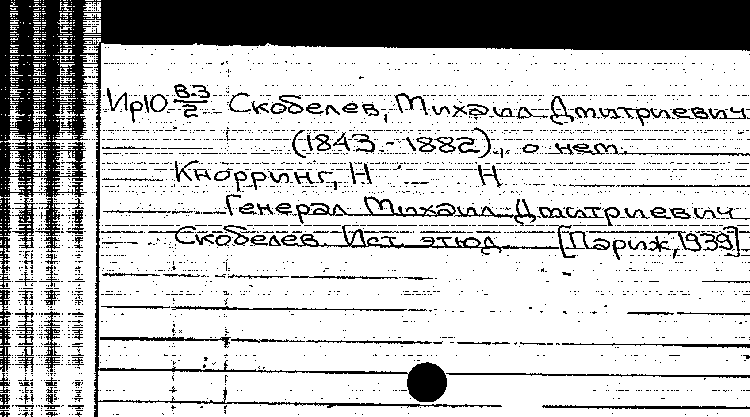 Ир10 В-3/2 Скобелев, Михаил Дмитриевич
(1843 - 1882)., о нем.
Кнорринг, Н Н
Генерал Михаил Дмитриевич
Скобелев. Ист. этюд. [Париж, 1939]